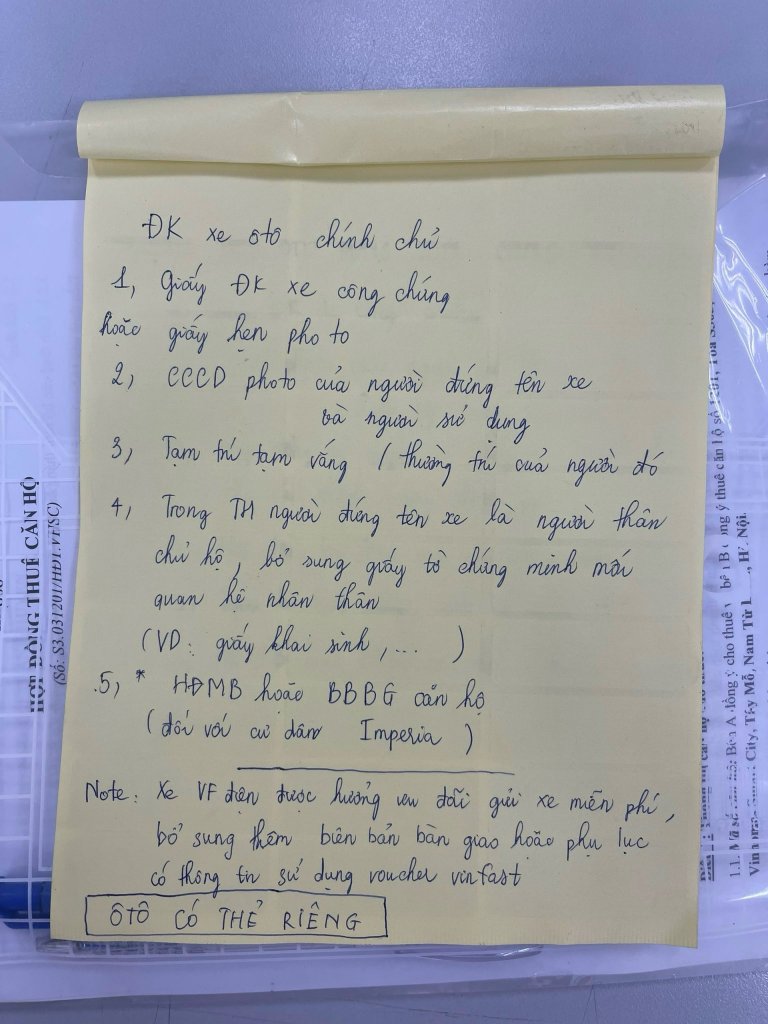 ĐK xe ôtô chính chủ
1, Giấy ĐK xe công chứng
hoặc giấy hẹn pho to
2, CCCD photo của người đứng tên xe
và người sử dụng
3, Tạm trú tạm vắng / thường trú của người đó
4, Trong TH người đứng tên xe là người thân
chủ hộ, bổ sung giấy tờ chứng minh mối
quan hệ nhân thân
(VD: giấy khai sinh, ... )
5, * HĐMB hoặc BBBG căn hộ
(đối với cư dân Imperia )
Note: Xe VF điện được hưởng ưu đãi gửi xe miễn phí,
bổ sung thêm biên bản bàn giao hoặc phụ lục
có thông tin sử dụng voucher vinfast
ÔTÔ CÓ THẺ RIÊNG
HỢP ĐỒNG THUÊ CĂN HỘ
(Số: S3.031201/HĐT.VFSC)